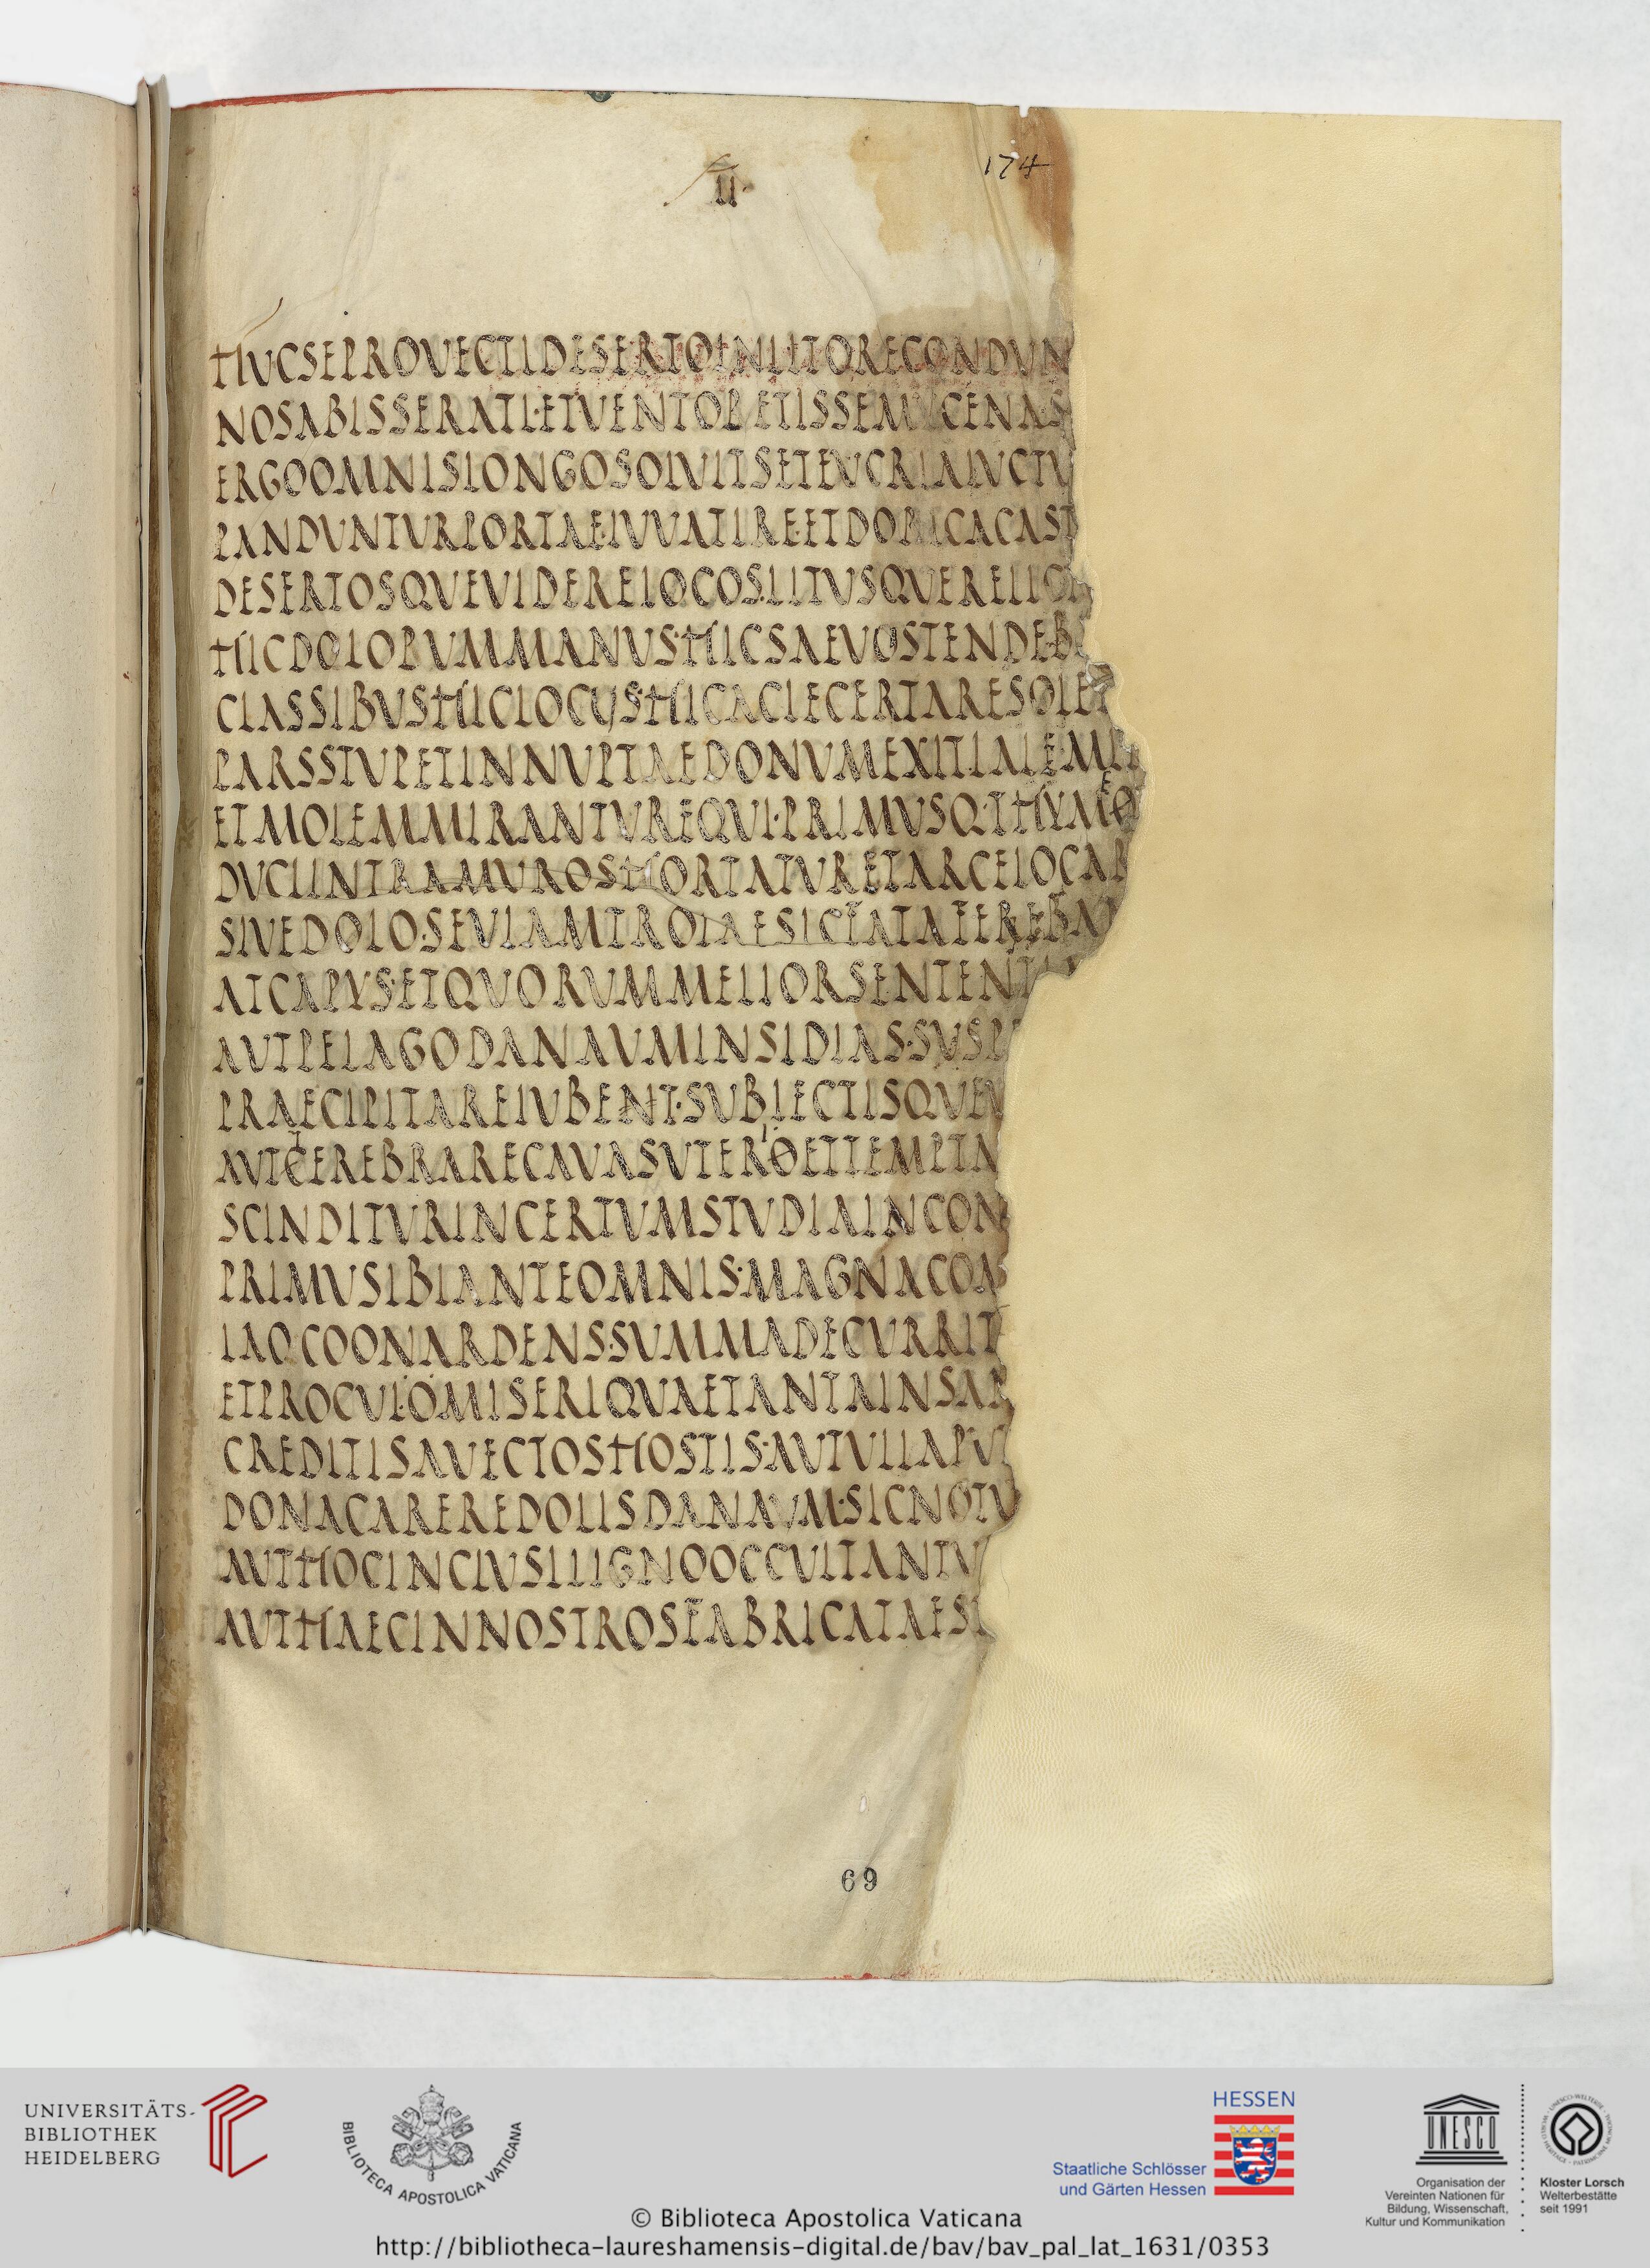 II
174
HUCSEPROVECTIDESERTOINLITORECONDUN
NOSABISSERATI·ETVENTOPETISSEMYCENAS
ERGOOMNISLONGOSOLVITSETEUCRIALUCTU
PANDUNTURPORTAE·IUVATIRE·ETDORICACAST
DESERTOSQUEVIDERELOCOS·LITUSQUERELIC
HICDOLOPUMMANUS·HICSAEVOSTENDEB
CLASSIBUSHICLOCUS·HICACIECERTARESOLE
PARSSTUPETINNUPTAEDONUMEXITIALEMI
ETMOLEMMIRANTUREQUI·PRIMUSQ·THYMOE
DUCIINTRAMUROSHORTATURETARCELOCAR
SIVEDOLO·SEUIAMTROIAESICFATAFEREBAN
ATCAPYS·ETQUORUMMELIORSENTENT
AUTPELAGODANAUMINSIDIAS·SUSP
PRAECIPITAREIUBENT·SUBIECTISQUE
AUTCEREBRARECAVASUTEROETTEMPTA
SCINDITURINCERTUMSTUDIAINCON
PRIMUSIBIANTEOMNIS·MAGNACOM
LAOCOONARDENS·SUMMADECURRIT
ETPROCUL·OMISERIQUAETANTAINSA
CREDITISAVECTOSHOSTIS·AUTULLAPU
DONACAREREDOLISDANAUM·SICNOTU
AUTHOCINCLUSILIGNOOCCULTANTU
AUTHAECINNOSTROSFABRICATAES
69
UNIVERSITÄTS-
BIBLIOTHEK
HEIDELBERG
BIBLIOTECA APOSTOLICA VATICANA
HESSEN
Staatliche Schlösser
und Gärten Hessen
UNESCO
Organisation der
Vereinten Nationen für
Bildung, Wissenschaft,
Kultur und Kommunikation
Kloster Lorsch
Welterbestätte
seit 1991
© Biblioteca Apostolica Vaticana
http://bibliotheca-laureshamensis-digital.de/bav/bav_pal_lat_1631/0353